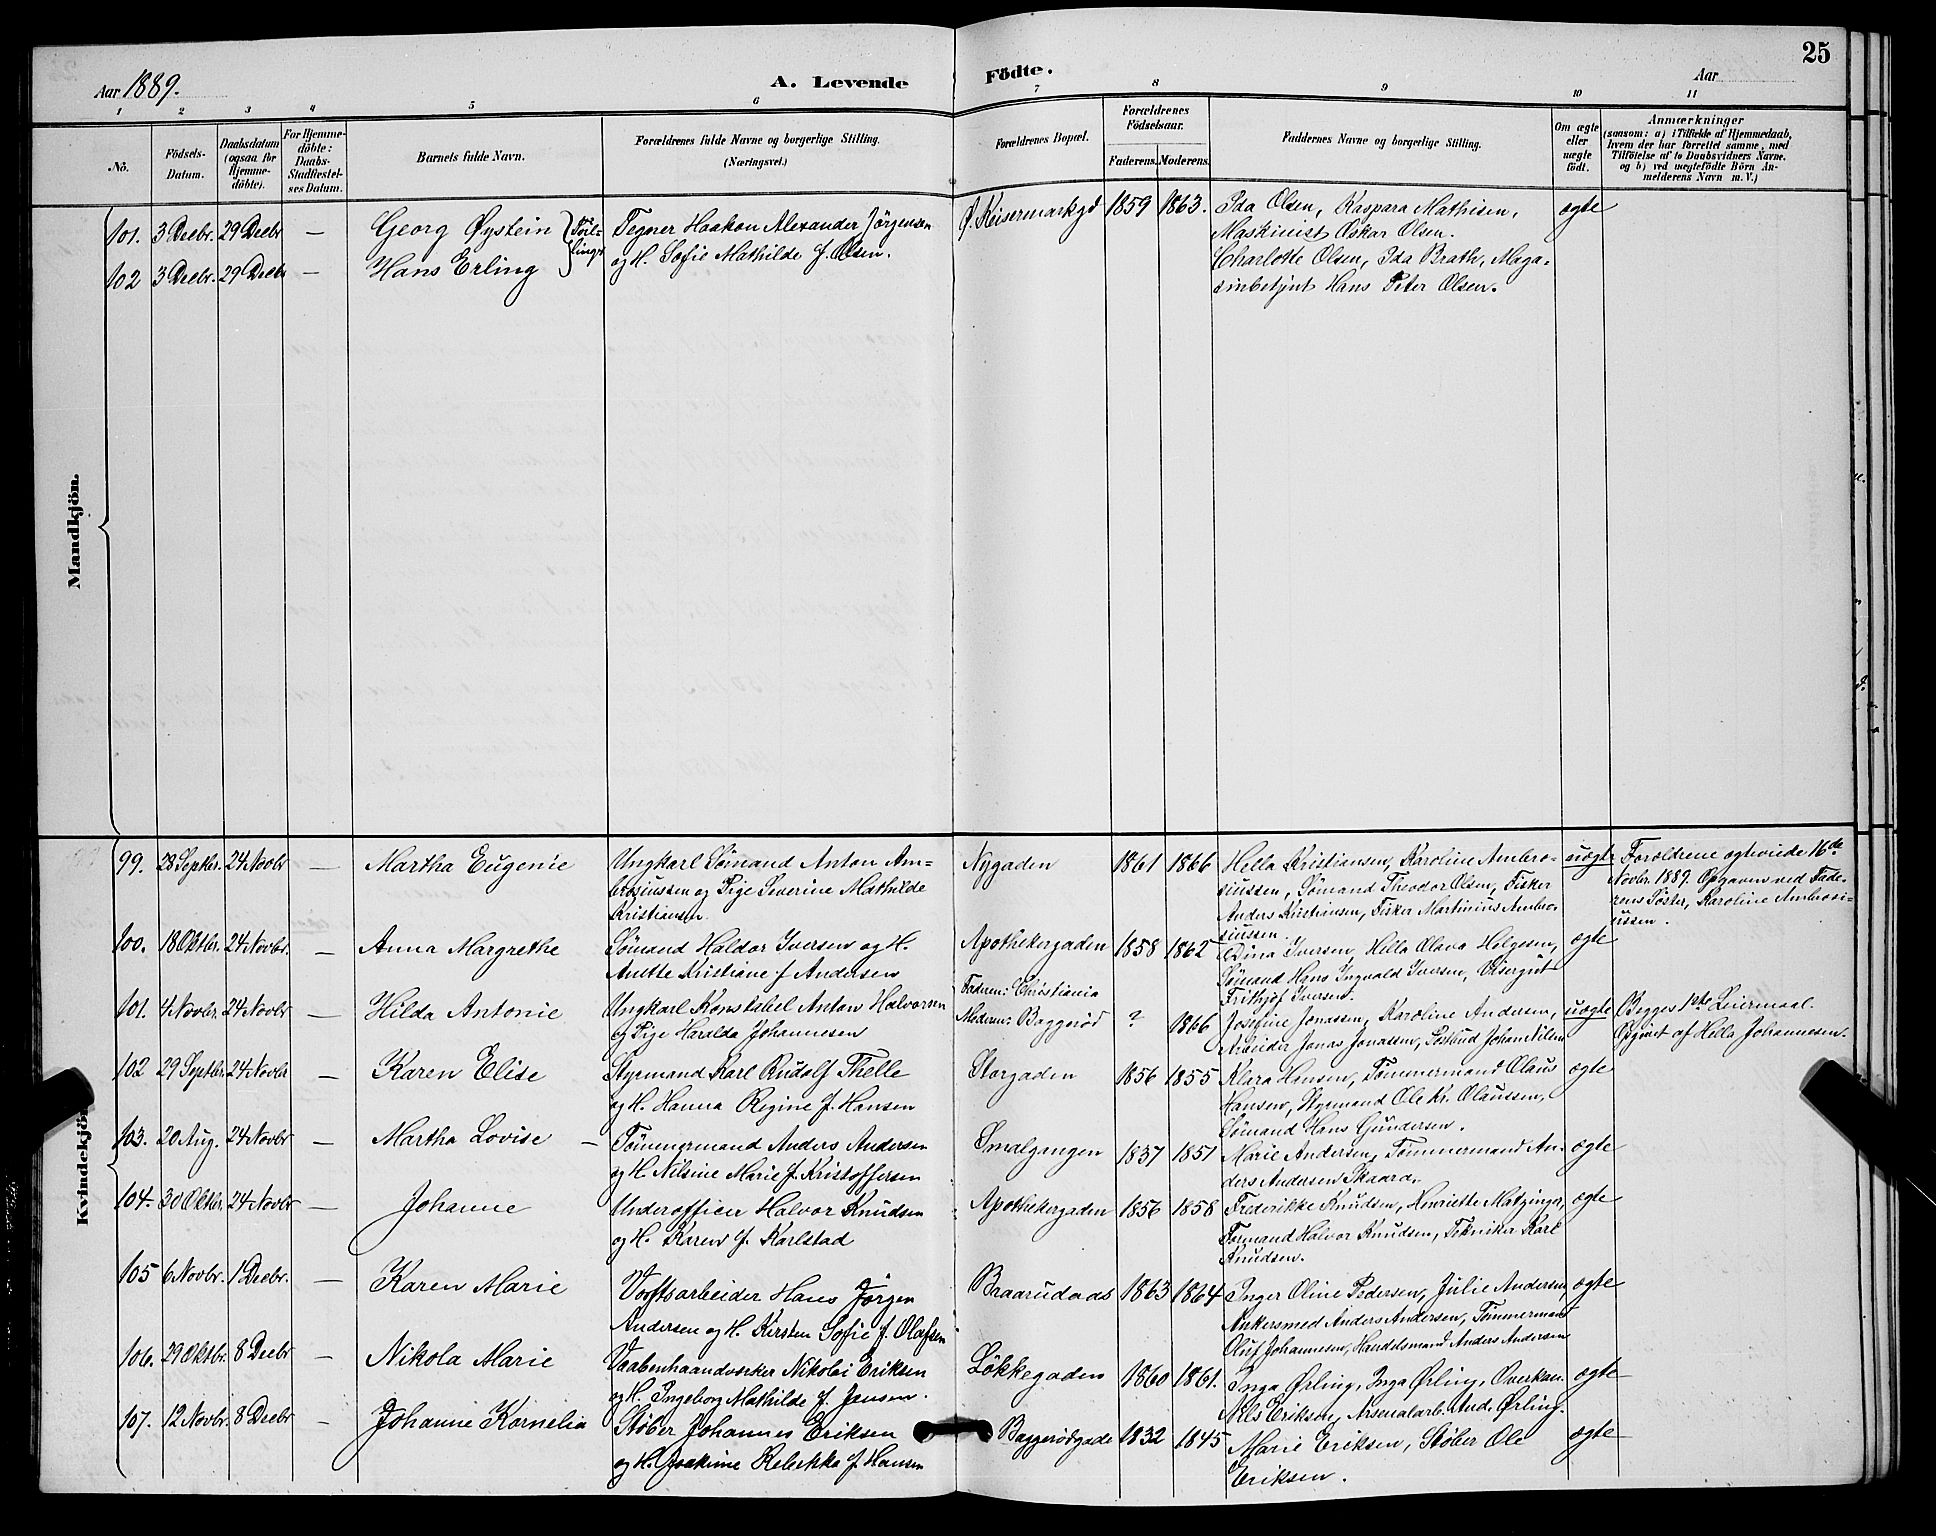 Aar 1889.
A. Levende
Födte.
Aar
25
1 2 3 4 5 6 7 8 9 10 11
No.
Födsels-Datum.
Daabsdatum (ogsaa for Hjemme-döbte).
For Hjemme-döbte: Daabs-Stadfæstel-ses Datum.
Barnets fulde Navn.
Forældrenes fulde Navne og borgerlige Stilling.
(Næringsvei.)
Forældrenes Bopæl.
Forældrenes Födselsaar.
Faderens. Moderens.
Faddernes Navne og borgerlige Stilling.
Om ægte eller uægte födt.
Anmærkninger
(saasom: a) i Tilfælde af Hjemmedaab,
hvem der har forrettet samme, med
Tilföielse af to Daabsvidners Navne.
og b) ved uægtefödte Börn An-
melderens Navn m. V.)
Mandkjön.
101. 3 Decbr. 29 Decbr — Georg Øystein } Tvil- Tegner Haakon Alexander Jörgensen Ø. Keisermarkgd 1859 1863. Ida Olsen, Kaspara Mathisen, ægte
Maskinist Oskar Olsen.
102 3 Decbr. 29 Decbr — Hans Erling } linger og H. Sofie Mathilde f. Olsen. Charlotte Olsen, Ida Brath, Maga-
sinbetjent Hans Peter Olsen.
Kvindekjön
99. 28 Septbr. 24 Novbr — Martha Eugenie Ungkarl Sömand Anton Am- Nygaden 1861 1866 Hella Kristiansen, Karoline Ambro- uægte Forældrene ægteviede 16de
brosiussen og Pige Severine Mathilde siussen, Sömand Theodor Olsen, Fisker Novbr. 1889. Opgaven ved Fade-
Kristiansen. Anders Kristiansen, Fisker Martinius Ambro- rens Söster, Karoline Ambrosi-
siussen ussen.
100. 18 Oktbr. 24 Novbr. — Anna Margrethe Sömand Haldor Iversen og H. Apothekergaden 1858 1862 Dina Iversen, Hella Olava Helgesen, ægte
Anette Kristiane f. Andersen Sömand Hans Ingvald Iversen, Visergut
Frithjof Iversen.
101. 4 Novbr. 24 Novbr — Hilda Antonie Ungkarl Konstabel Anton Halvorsen Faderen: Christiania
og Pige Haralda Johannesen Moderen: Baggeröd ? 1866 Josefine Jonassen, Karoline Andersen, uægte Begges 1ste Leiermaal.
Arbeider Jonas Jonassen, Johan Opgivet af Hella Johannesen.
102 29 Septbr. 24 Novbr — Karen Elise Styrmand Karl Rudolf Thelle Storgaden 1856 1855 Klara Hansen, Tömmermand Olaus ægte
og H. Hanna Regine f. Hansen Hansen, Styrmand Ole Kr. Olaussen,
Sömand Hans Gundersen.
103. 20 Aug. 24 Novbr — Martha Lovise — Tömmermand Anders Andersen Smalgangen 1837 1851 Marie Andersen, Tömmermand An- ægte
og H. Nilsine Marie f. Kristoffersen ders Andersen Skaara.
104. 30 Oktbr. 24 Novbr — Johanne Underofficer Halvor Knudsen Apothekergaden 1856 1858 Frederikke Knudsen, Henriette Matzinger, ægte
og H. Karen f. Karlstad Formand Halvor Knudsen, Tekniker Karl
Knudsen.
105 6 Novbr. 1 Decbr. — Karen Marie Værftsarbeider Hans Jörgen Braarudaas 1863 1864 Inger Oline Pedersen, Julie Andersen, ægte
Andersen og H. Kirsten Sofie f. Olafsen Ankersmed Anders Andersen, Tömmermand
Oluf Johannesen, Anders Andersen
106. 29 Oktbr. 8 Decbr — Nikola Marie Vaabenhaandverker Nikolai Eriksen Lökkegaden 1860 1861. Inga Ørling, Inga Ørling, Overkan. ægte
og H. Ingeborg Mathilde f. Jansen. Nils Eriksen, Arsenalarb. And. Ørling.
107. 12 Novbr. 8 Decbr — Johanne Kornelia Stöber Johannes Eriksen Baggerödgade 1832 1845 Marie Eriksen, Stöber Ole ægte
og H. Joakime Rebekka f. Hansen Eriksen.